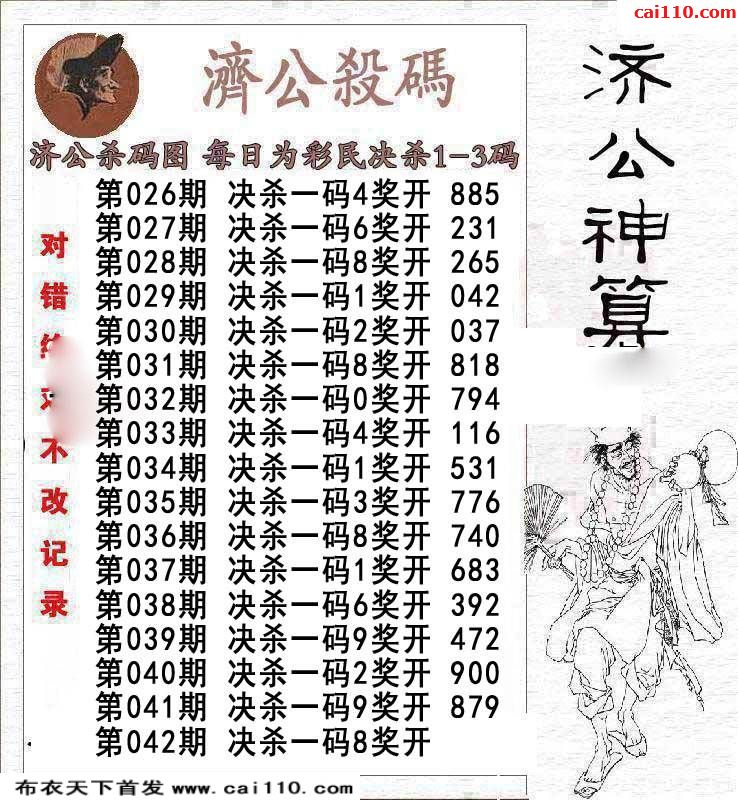 cai110.com
濟公殺碼
济公杀码图 每日为彩民决杀1-3码
第026期 决杀一码4奖开 885
第027期 决杀一码6奖开 231
第028期 决杀一码8奖开 265
第029期 决杀一码1奖开 042
第030期 决杀一码2奖开 037
第031期 决杀一码8奖开 818
第032期 决杀一码0奖开 794
第033期 决杀一码4奖开 116
第034期 决杀一码1奖开 531
第035期 决杀一码3奖开 776
第036期 决杀一码8奖开 740
第037期 决杀一码1奖开 683
第038期 决杀一码6奖开 392
第039期 决杀一码9奖开 472
第040期 决杀一码2奖开 900
第041期 决杀一码9奖开 879
第042期 决杀一码8奖开
对错不改记录
济公神算
布衣天下首发 www.cai110.com